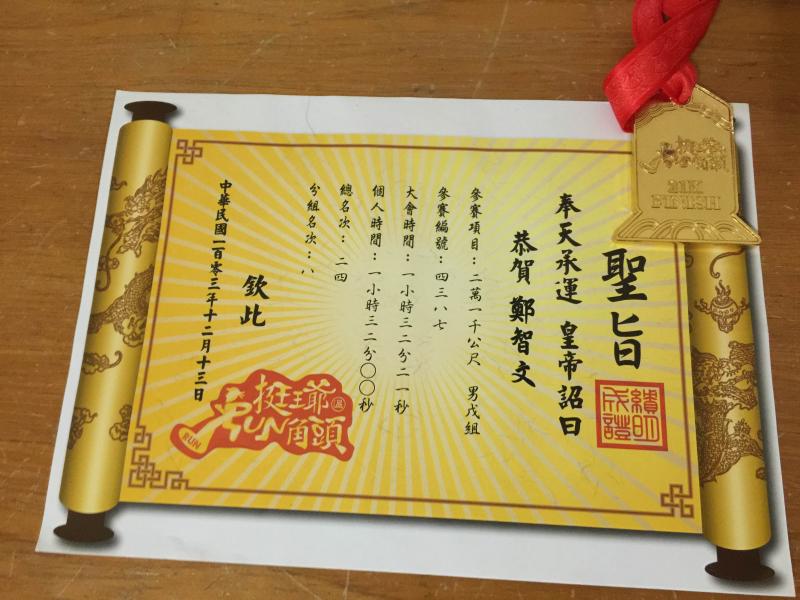 聖旨
奉天承運 皇帝詔曰
恭賀 鄭智文
參賽項目：二萬一千公尺 男戊組
參賽編號：四三八七
大會時間：一小時三二分二一秒
個人時間：一小時三二分〇〇秒
總名次：二四
分組名次：八
欽此
中華民國一百零三年十二月十三日
成績證明
挺王爺
RUN角頭
RUN
21K
FINISH